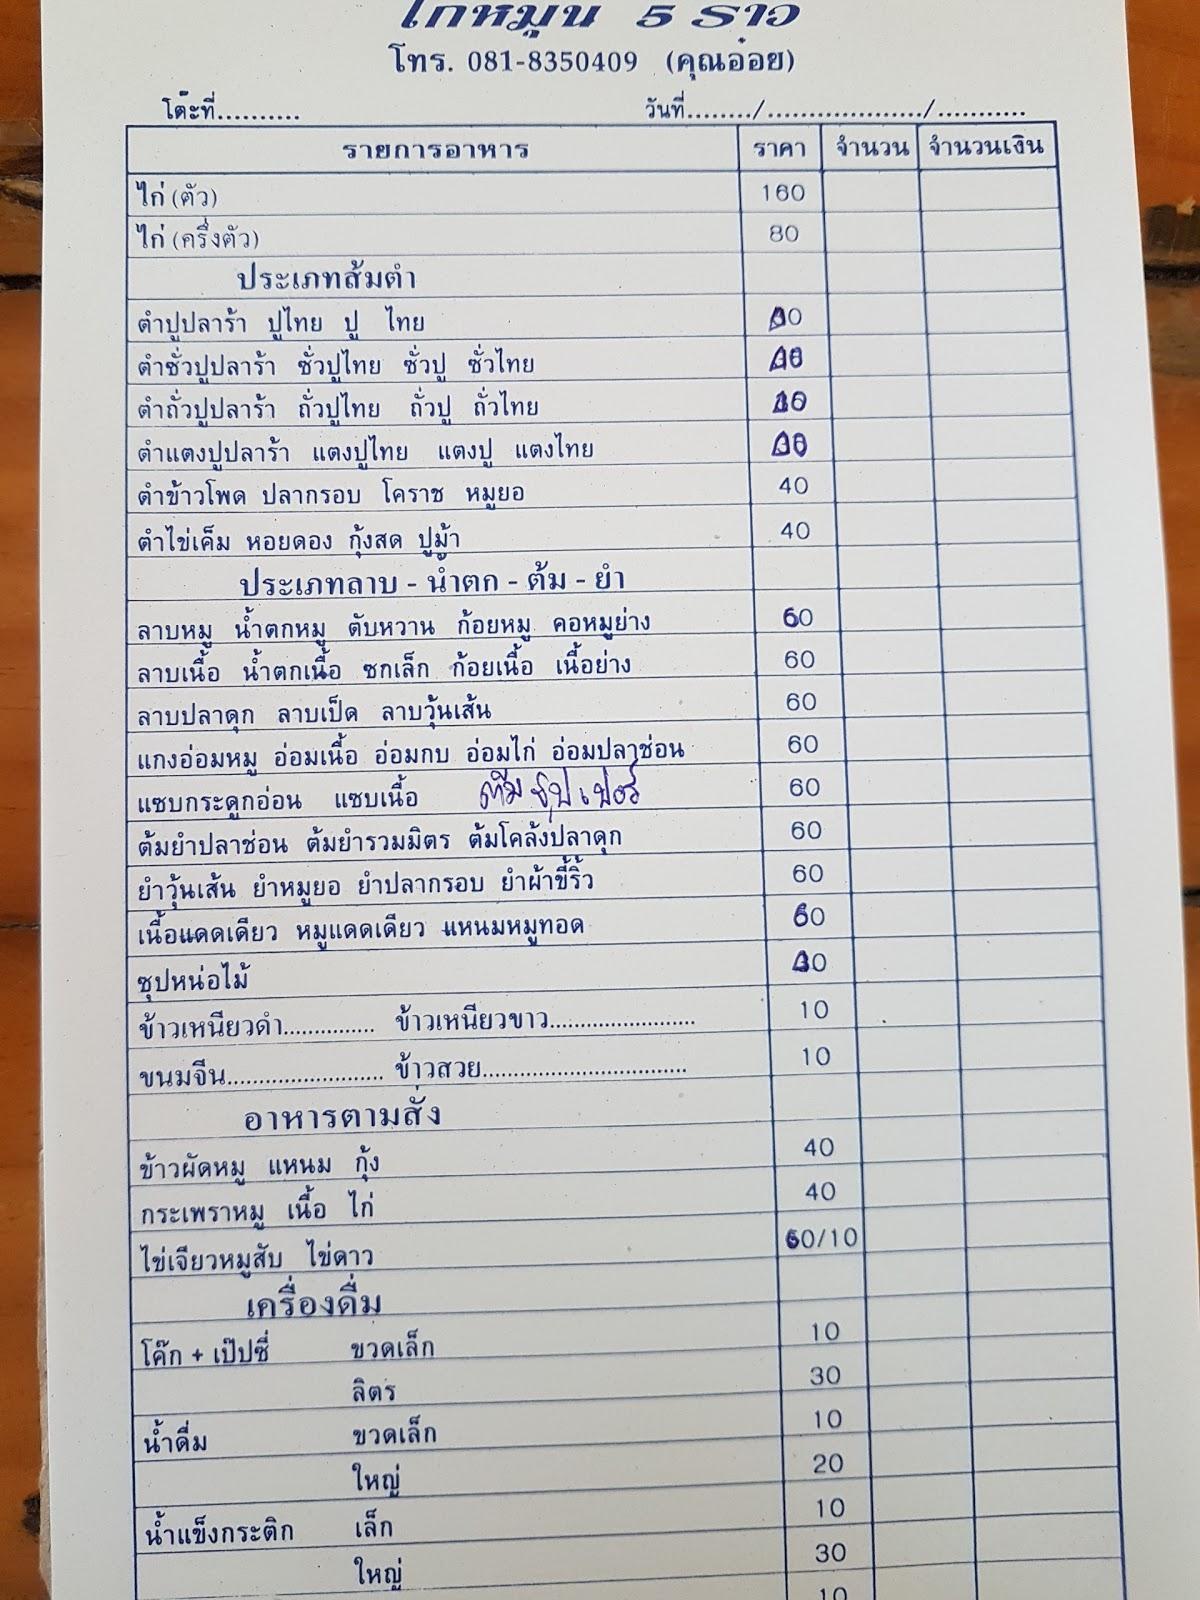 ไก่หมุน 5 ราว
โทร. 081-8350409 (คุณอ๋อย)
โต๊ะที่.......... วันที่......../..................../...........
รายการอาหาร ราคา จำนวน จำนวนเงิน
ไก่ (ตัว) 160
ไก่ (ครึ่งตัว) 80
ประเภทส้มตำ
ตำปูปลาร้า ปูไทย ปู ไทย
ตำซั่วปูปลาร้า ซั่วปูไทย ซั่วปู ซั่วไทย
ตำถั่วปูปลาร้า ถั่วปูไทย ถั่วปู ถั่วไทย
ตำแตงปูปลาร้า แตงปูไทย แตงปู แตงไทย
ตำข้าวโพด ปลากรอบ โคราช หมูยอ 40
ตำไข่เค็ม หอยดอง กุ้งสด ปูม้า 40
ประเภทลาบ - น้ำตก - ต้ม - ยำ
ลาบหมู น้ำตกหมู ตับหวาน ก้อยหมู คอหมูย่าง 60
ลาบเนื้อ น้ำตกเนื้อ ซกเล็ก ก้อยเนื้อ เนื้อย่าง 60
ลาบปลาดุก ลาบเป็ด ลาบวุ้นเส้น 60
แกงอ่อมหมู อ่อมเนื้อ อ่อมกบ อ่อมไก่ อ่อมปลาช่อน 60
แซบกระดูกอ่อน แซบเนื้อ ตีนซุปเปอร์ 60
ต้มยำปลาช่อน ต้มยำรวมมิตร ต้มโคล้งปลาดุก 60
ยำวุ้นเส้น ยำหมูยอ ยำปลากรอบ ยำผ้าขี้ริ้ว 60
เนื้อแดดเดียว หมูแดดเดียว แหนมหมูทอด 60
ซุปหน่อไม้
ข้าวเหนียวดำ............... ข้าวเหนียวขาว....................... 10
ขนมจีน......................... ข้าวสวย................................ 10
อาหารตามสั่ง
ข้าวผัดหมู แหนม กุ้ง 40
กระเพราหมู เนื้อ ไก่ 40
ไข่เจียวหมูสับ ไข่ดาว 60/10
เครื่องดื่ม
โค๊ก + เป๊ปซี่ ขวดเล็ก 10
ลิตร 30
น้ำดื่ม ขวดเล็ก 10
ใหญ่ 20
น้ำแข็งกระติก เล็ก 10
ใหญ่ 30
10